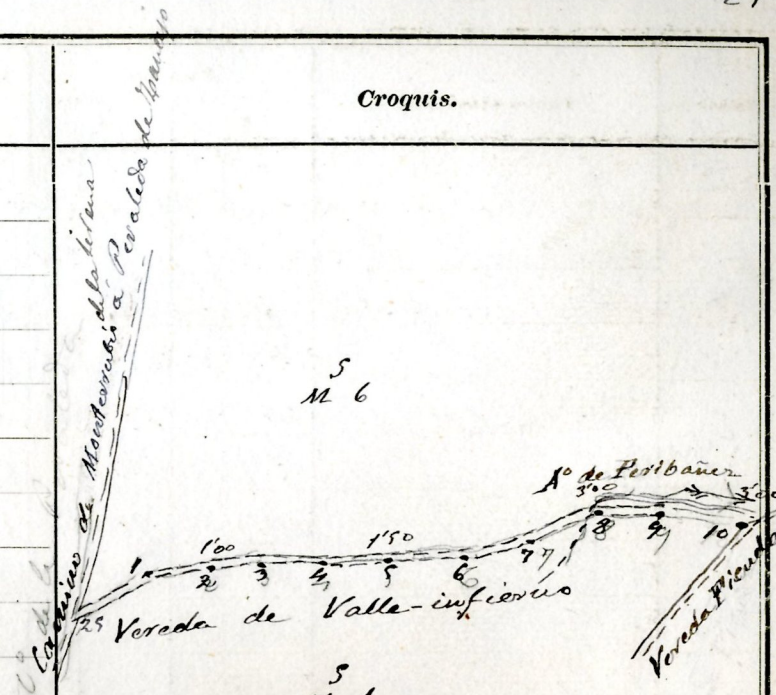 Croquis.
Camino de Monterrubio de la Serena á Peraleda de Zaucejo
5
M 6
A° de Peribañez
3'00
3'00
1'00
1'50
1
2
3
4
5
6
7
7
8
9
10
29
Vereda de Valle-infierno
Vereda
5